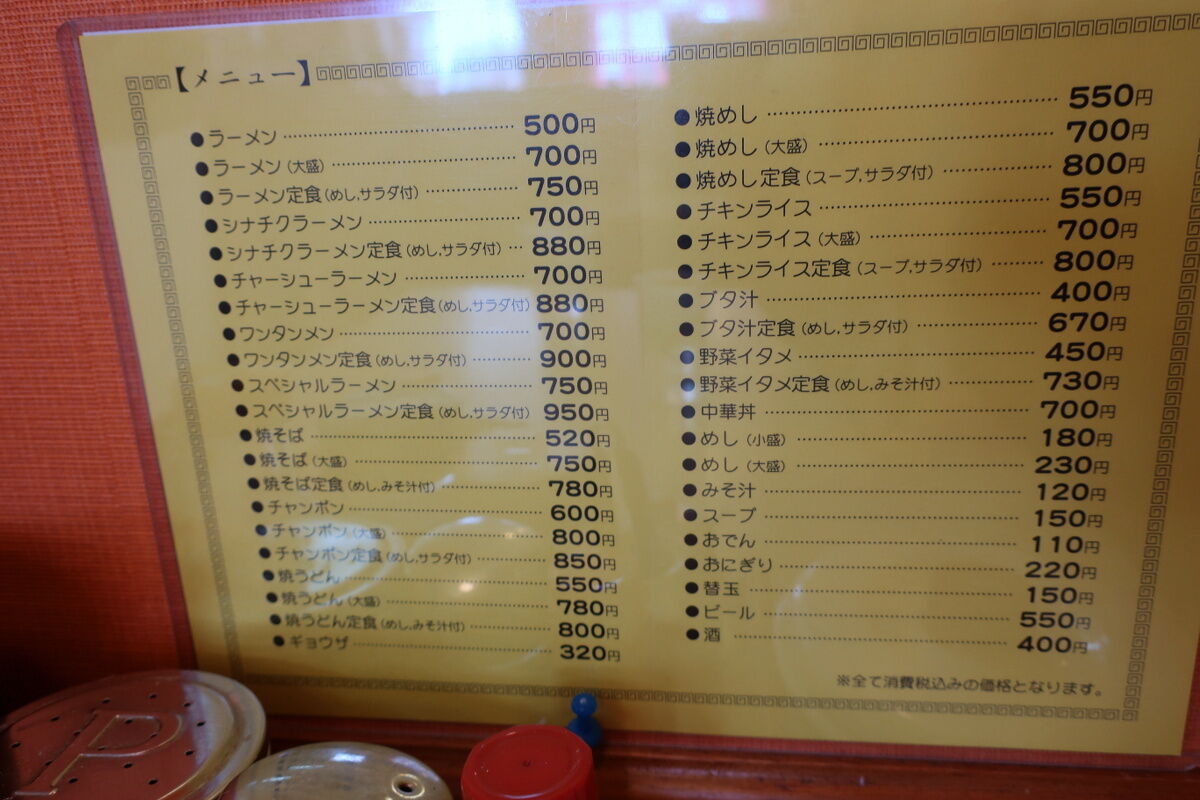 【メニュー】
●ラーメン 500円
●ラーメン(大盛) 700円
●ラーメン定食(めし,サラダ付) 750円
●シナチクラーメン 700円
●シナチクラーメン定食(めし,サラダ付) 880円
●チャーシューラーメン 700円
●チャーシューラーメン定食(めし,サラダ付) 880円
●ワンタンメン 700円
●ワンタンメン定食(めし,サラダ付) 900円
●スペシャルラーメン 750円
●スペシャルラーメン定食(めし,サラダ付) 950円
●焼そば 520円
●焼そば(大盛) 750円
●焼そば定食(めし,みそ汁付) 780円
●チャンポン 600円
●チャンポン(大盛) 800円
●チャンポン定食(めし,サラダ付) 850円
●焼うどん 550円
●焼うどん(大盛) 780円
●焼うどん定食(めし,みそ汁付) 800円
●ギョウザ 320円
●焼めし 550円
●焼めし(大盛) 700円
●焼めし定食(スープ,サラダ付) 800円
●チキンライス 550円
●チキンライス(大盛) 700円
●チキンライス定食(スープ,サラダ付) 800円
●ブタ汁 400円
●ブタ汁定食(めし,サラダ付) 670円
●野菜イタメ 450円
●野菜イタメ定食(めし,みそ汁付) 730円
●中華丼 700円
●めし(小盛) 180円
●めし(大盛) 230円
●みそ汁 120円
●スープ 150円
●おでん 110円
●おにぎり 220円
●替玉 150円
●ビール 550円
●酒 400円
※全て消費税込みの価格となります。
P